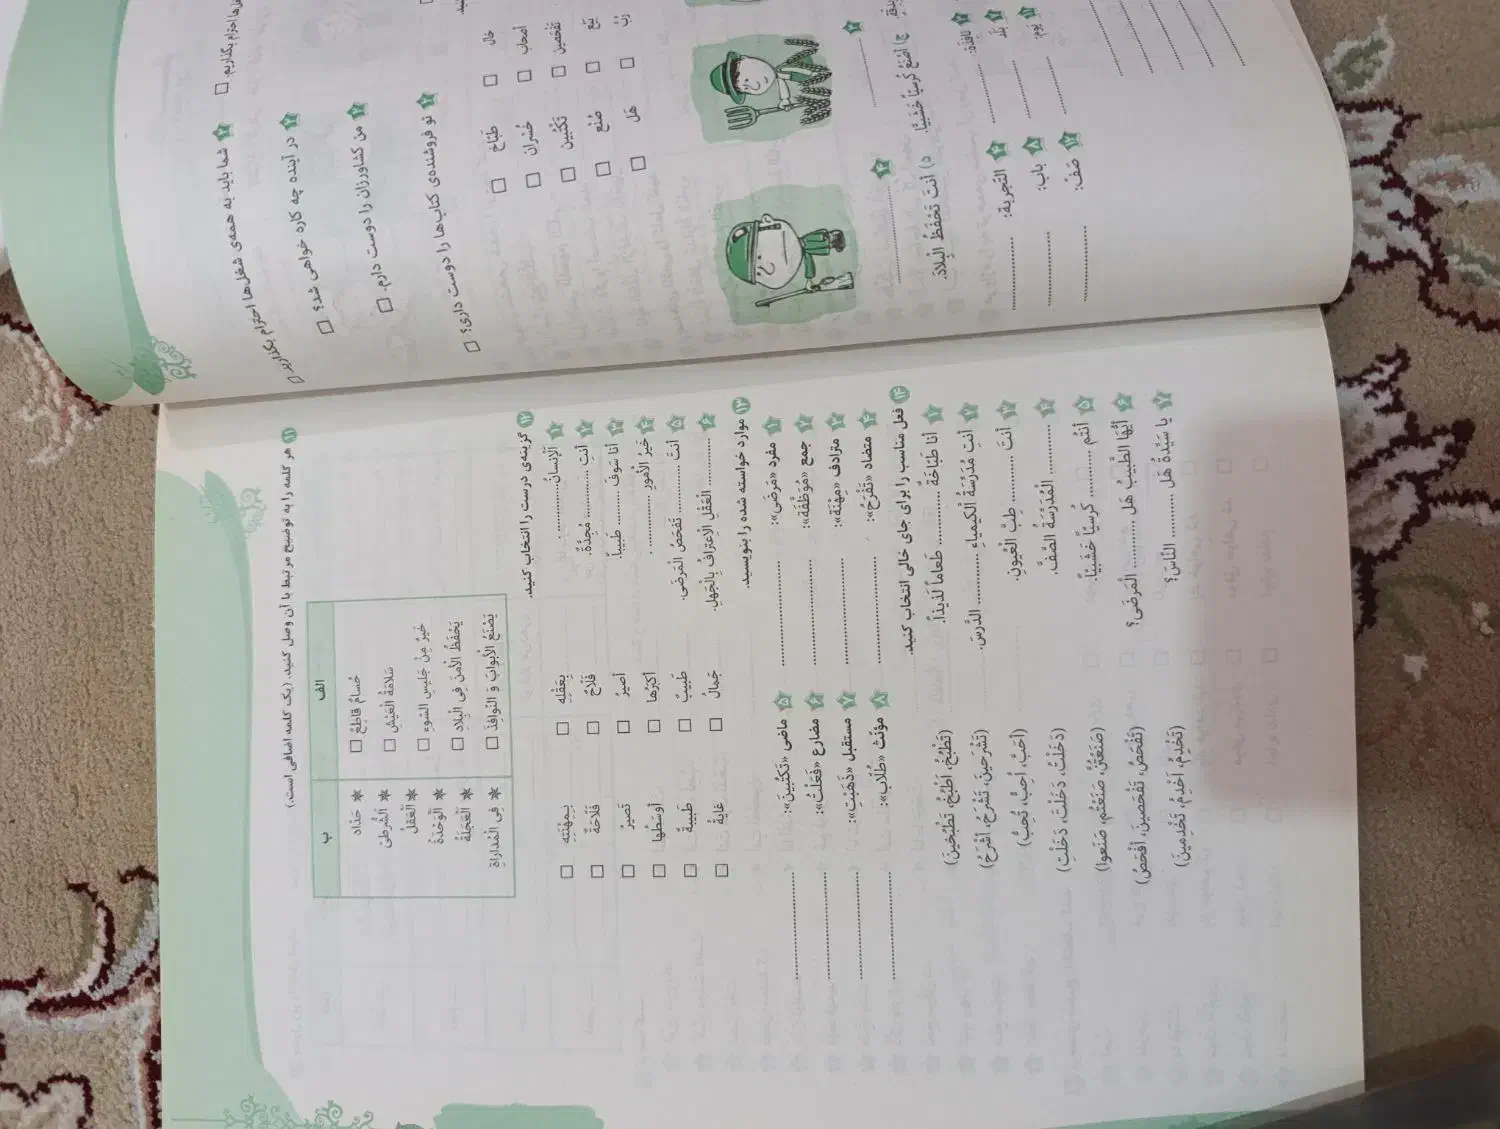 ها احترام بگذاریم.
۲ شما باید به همه‌ی شغل‌ها احترام بگذارید
۲ در آینده چه کاره خواهی شد؟
۲ من کشاورزان را دوست دارم.
۲ تو فروشنده‌ی کتاب‌ها را دوست داری؟
خال طَبّاخ
أصحاب خُسران
تَفْحَصینَ تَکْتُبینَ
بَیع صُنْع
رُبّ هَل
ج) أَصْنَعُ کُرسیّاً خَشَبیّاً. د) أنتَ تَحْفَظُ الْبِلادَ.
نافِذَة: التَّجرِبة:
بَلَد باب:
یَوم: صَفّ:
۱۱ هر کلمه را به توضیح مرتبط با آن وصل کنید. (یک کلمه اضافی است.)
الف ب
حُسامٌ قاطِعٌ * حَدّاد
سَلامَةُ الْعَیْشِ * الشُّرطیّ
خَیرٌ مِنْ جَلیسِ السّوءِ * الْعَقلُ
یَحْفَظُ الْأمنَ فِی الْبِلادِ * الْوَحْدَةُ
یَصْنَعُ الْأبْوابَ وَ النَّوافِذَ * الْعَجَلَةُ
* فِی الْمُداراةِ
۱۲ گزینه‌ی درست را انتخاب کنید.
۱ اَلْإنسانُ ........... . بِعَقْلِهِ بِمِهْنَتِهِ
۲ أنتِ ........... مُجِدَّةٌ. فَلّاحٌ فَلّاحَةٌ
۳ أنا سَوفَ ........... طَبیباً. أصیرُ تَصیرُ
۴ خَیرُ الْأمورِ ........... . أکبَرُها أوسَطُها
۵ أنتَ ........... تَفحَصُ الْمَرضَی. طَبیبٌ طَبیبةٌ
۶ ........... الْعَقْلِ الْاِعْتِرافُ بِالْجَهلِ. جَمالُ غایَةُ
۱۳ موارد خواسته شده را بنویسید.
۱ مفرد «مَرضَی»: ........... ۵ ماضی «تَکْتُبینَ»: ...........
۲ جمع «مُوَظَّفَة»: ........... ۶ مضارع «فَعَلْتُ»: ...........
۳ مترادف «مِهْنَة»: ........... ۷ مستقبل «ذَهَبْتِ»: ...........
۴ متضاد «تَفْرَحُ»: ........... ۸ مؤنّث «طُلّاب»: ...........
۱۴ فعل مناسب را برای جای خالی انتخاب کنید.
۱ أنا طَبّاخَةٌ ........... طَعاماً لَذیذاً. (تَطْبُخُ، أطْبُخُ، تَطْبُخینَ)
۲ أنتِ مُدَرِّسَةُ الْکیمیاءِ ........... الدَّرسَ. (تَشْرَحینَ، تَشْرَحُ، أشْرَحُ)
۳ أنتَ ........... طِبَّ الْعُیونِ. (أحَبَّ، أُحِبُّ، تُحِبُّ)
۴ ........... الْمُدَرِّسَةُ الصَّفَّ. (دَخَلْتُ، دَخَلَتْ، دَخَلْتِ)
۵ أنتُم ........... کُرسیّاً خَشَبیّاً. (صَنَعْتُنَّ، صَنَعْتُم، صَنَعوا)
۶ أیُّهَا الطَّبیبُ هَل ........... الْمَرضَی؟ (تَفْحَصُ، تَفْحَصینَ، أفْحَصُ)
۷ یا سَیِّدَةُ هَل ........... النّاسَ؟ (تَخْدِمُ، أخْدِمُ، تَخْدِمینَ)